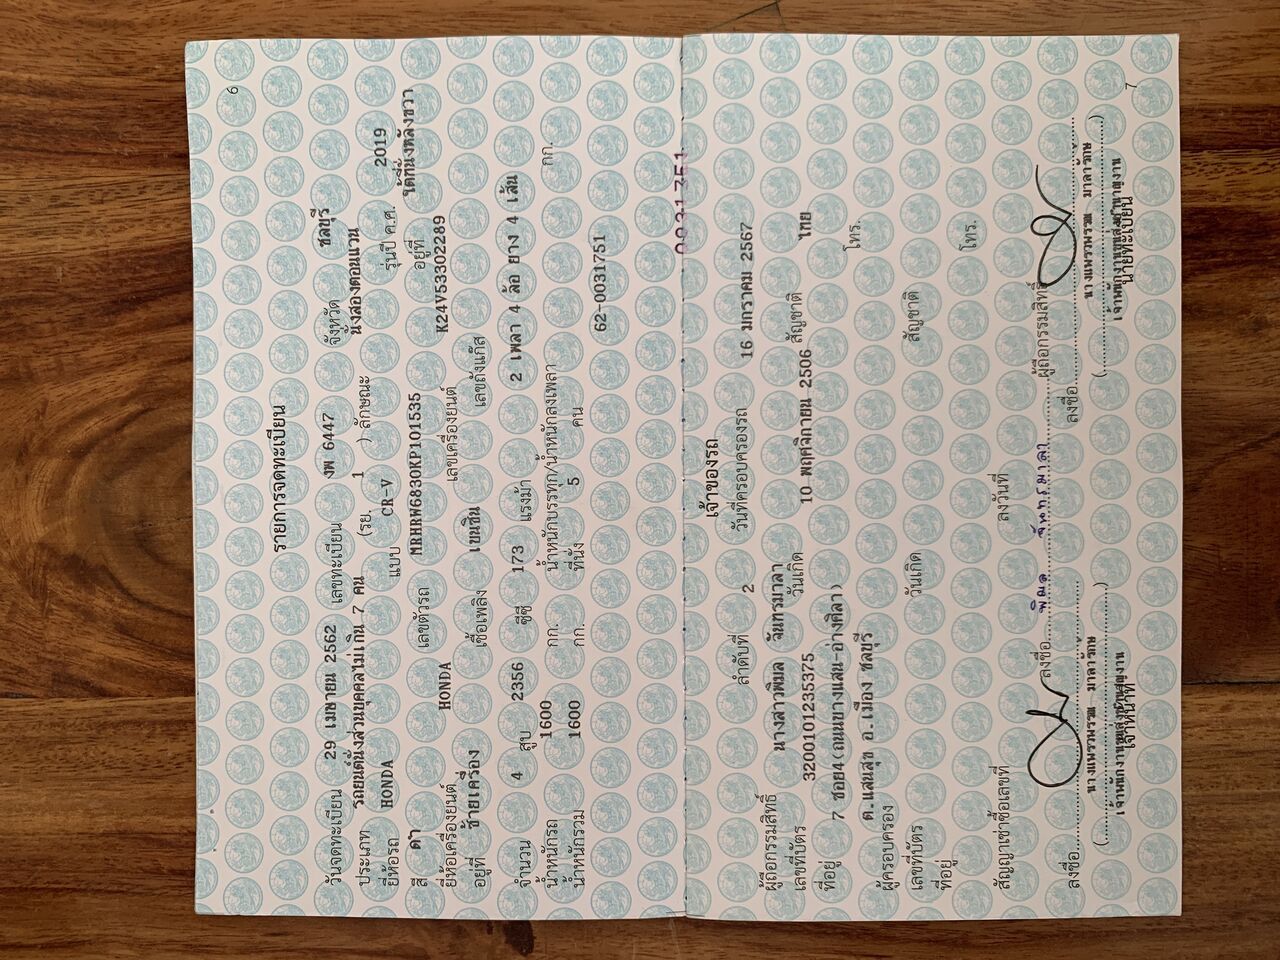 6
รายการจดทะเบียน
วันจดทะเบียน 29 เมษายน 2562 เลขทะเบียน งพ 6447 จังหวัด ชลบุรี
ประเภท รถยนต์นั่งส่วนบุคคลไม่เกิน 7 คน (รย. 1 ) ลักษณะ นั่งสองตอนแวน
ยี่ห้อรถ HONDA แบบ CR-V รุ่นปี ค.ศ. 2019
สี ดำ เลขตัวรถ MRHRW6830KP101535 อยู่ที่ ใต้ที่นั่งหลังขวา
ยี่ห้อเครื่องยนต์ HONDA เลขเครื่องยนต์ K24V53302289
อยู่ที่ ซ้ายเครื่อง เชื้อเพลิง เบนซิน เลขถังแก๊ส
จำนวน 4 สูบ 2356 ซีซี 173 แรงม้า 2 เพลา 4 ล้อ ยาง 4 เส้น
น้ำหนักรถ 1600 กก. น้ำหนักบรรทุก/น้ำหนักลงเพลา กก.
น้ำหนักรวม 1600 กก. ที่นั่ง 5 คน
62-0031751
0031751
เจ้าของรถ
ลำดับที่ 2 วันที่ครอบครองรถ 16 มกราคม 2567
ผู้ถือกรรมสิทธิ์ นางสาวพิมล จันทรมาลา
เลขที่บัตร 3200101235375 วันเกิด 10 พฤศจิกายน 2506 สัญชาติ ไทย
ที่อยู่ 7 ซอย4(ถนนบางแสน-อ่างศิลา)
ต.แสนสุข อ.เมือง ชลบุรี โทร.
ผู้ครอบครอง
เลขที่บัตร วันเกิด สัญชาติ
ที่อยู่ โทร.
สัญญาเช่าซื้อเลขที่ ลงวันที่
ลงชื่อ พิมล จันทรมาลา ผู้ถือกรรมสิทธิ์
ลงชื่อ ลงชื่อ
เจ้าหน้าที่ นายทะเบียน
7